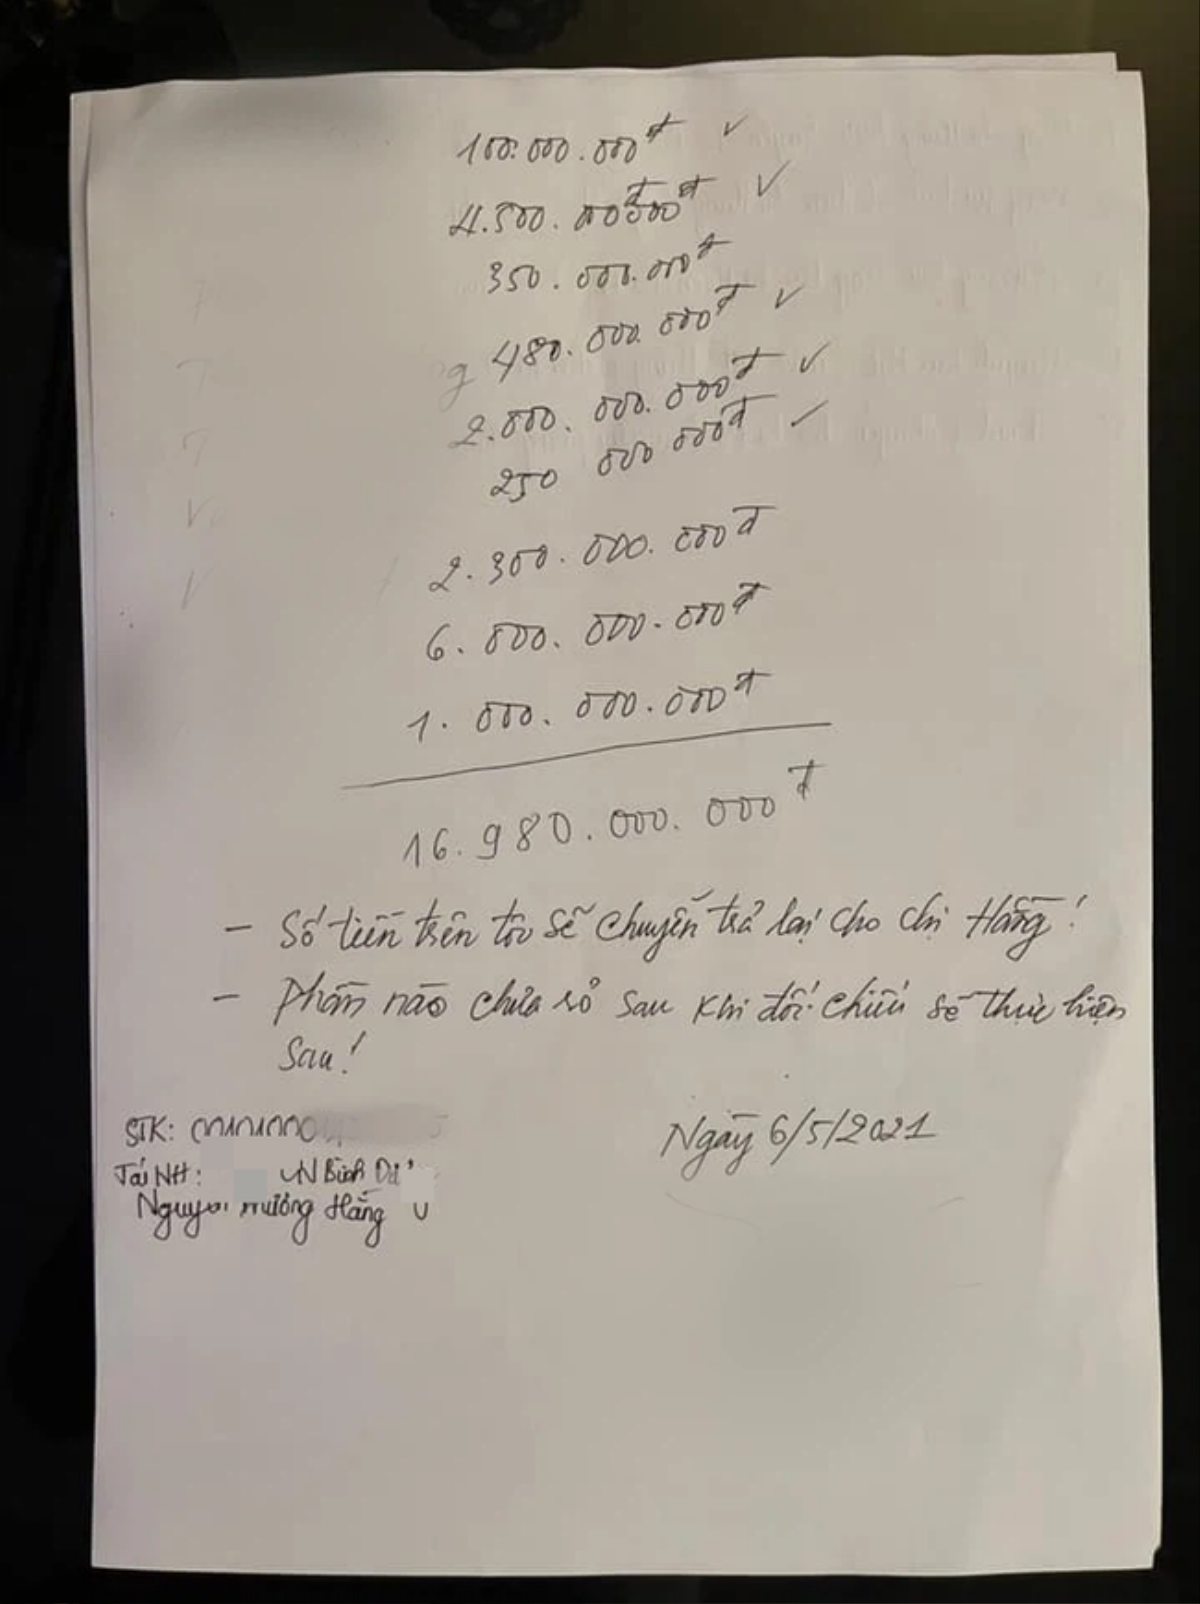 100.000.000đ ✓
4.500.000000đ ✓
350.000.000đ
480.000.000đ ✓
2.000.000.000đ ✓
250 000 000đ ✓
2.300.000.000đ
6.000.000.000đ
1.000.000.000đ
16.980.000.000đ
- Số tiền trên tôi sẽ chuyển trả lại cho chị Hằng!
- Phần nào chưa rỏ sau khi đối chiếu sẽ thực hiện
sau!
Ngày 6/5/2021
STK:
Tại NH: CN Bình
Phương Hằng